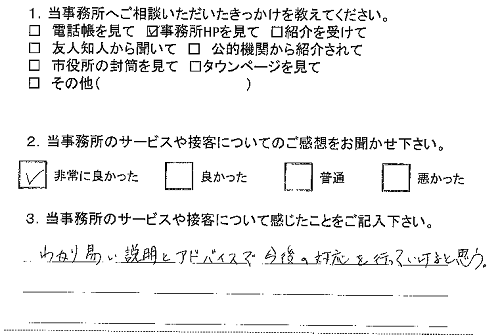 1. 当事務所へご相談いただいたきっかけを教えてください。
□ 電話帳を見て ☑事務所HPを見て □紹介を受けて
□ 友人知人から聞いて □ 公的機関から紹介されて
□ 市役所の封筒を見て □タウンページを見て
□ その他( )
2. 当事務所のサービスや接客についてのご感想をお聞かせ下さい。
☑ 非常に良かった □ 良かった □ 普通 □ 悪かった
3. 当事務所のサービスや接客について感じたことをご記入下さい。
わかり易い説明とアドバイスで今後の対応を行っていけると思う。